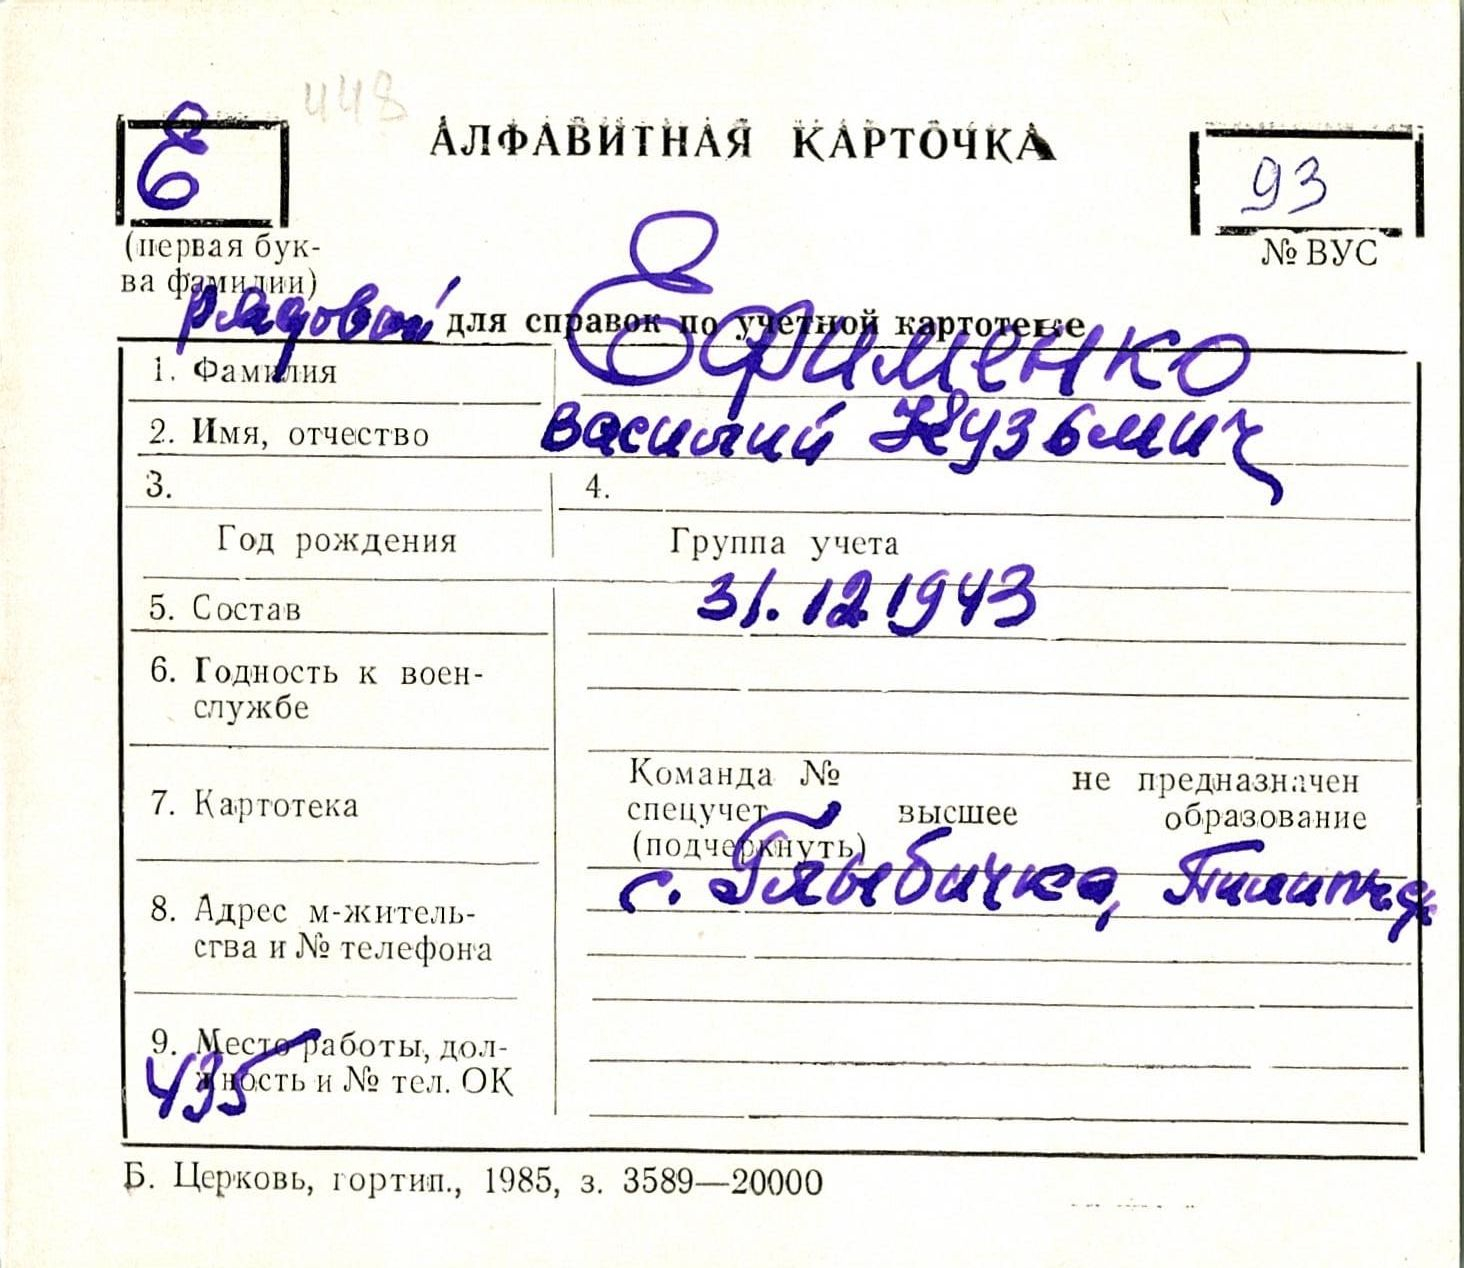 448
Е
АЛФАВИТНАЯ КАРТОЧКА
93
(первая бук-
ва фамилии)
№ ВУС
рядовой для справок по учетной картотеке
1. Фамилия Ефименко
2. Имя, отчество Василий Кузьмич
3. 4.
Год рождения Группа учета
5. Состав 31.12.1943
6. Годность к воен-
службе
7. Картотека
Команда № не предназначен
спецучет высшее образование
(подчеркнуть)
8. Адрес м-житель-
ства и № телефона
с. Глыбичка,
9. Место работы, дол-
жность и № тел. ОК
435
Б. Церковь, гортип., 1985, з. 3589—20000